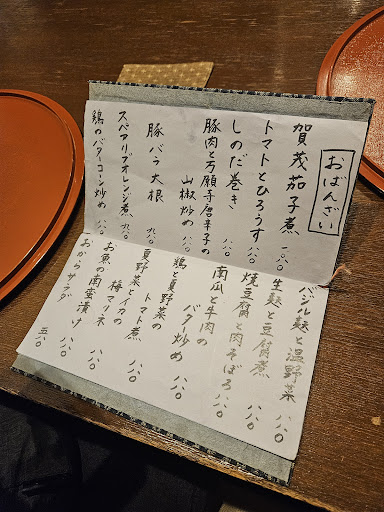 おばんざい
賀茂茄子煮 一、〇八〇
トマトとひろうす 八八〇
しのだ巻き 八八〇
豚肉と万願寺唐辛子の
山椒炒め 八八〇
豚バラ大根 九八〇
スペアリブオレンジ煮 九八〇
鶏のバターコーン炒め 八八〇
バジル麩と温野菜 八八〇
生麩と豆腐煮 八八〇
焼豆腐と肉そぼろ 八八〇
南瓜と牛肉の
バター炒め 八八〇
鶏と夏野菜の
トマト煮 八八〇
夏野菜とイカの
梅マリネ 八八〇
お魚の南蛮漬け 八八〇
おからサラダ 五八〇